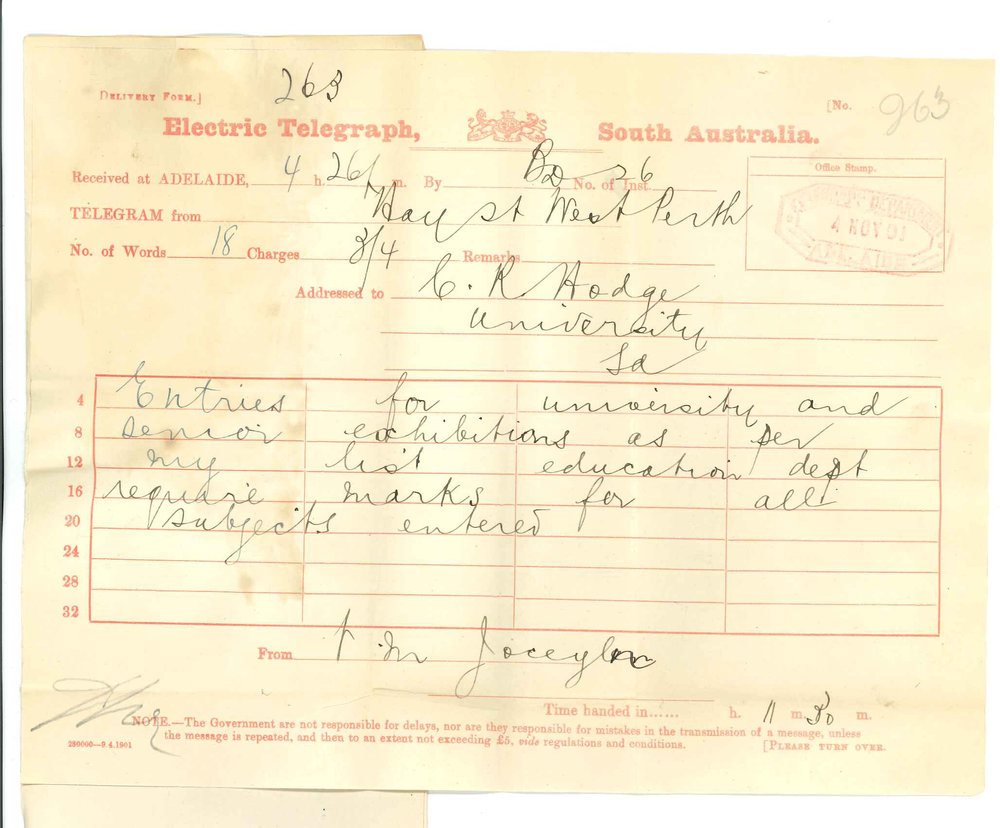 263
[DELIVERY FORM.] [No. 263
Electric Telegraph, South Australia.
Received at ADELAIDE, 4 h. 26 m. By BD No. of Inst. 26
Office Stamp.
TELEGRAM from Hay St West Perth
4 NOV 01
ADELAIDE
No. of Words 18 Charges 3/4 Remarks
Addressed to C. R. Hodge
University
Sa
4 Entries for university and
8 senior exhibitions as per
12 my list education dept
16 require marks for all
20 subjects entered
24
28
32
From M
Time handed in...... h. 11 m. 50 m.
NOTE.—The Government are not responsible for delays, nor are they responsible for mistakes in the transmission of a message, unless
the message is repeated, and then to an extent not exceeding £5, vide regulations and conditions. [PLEASE TURN OVER.
280000—9.4.1901